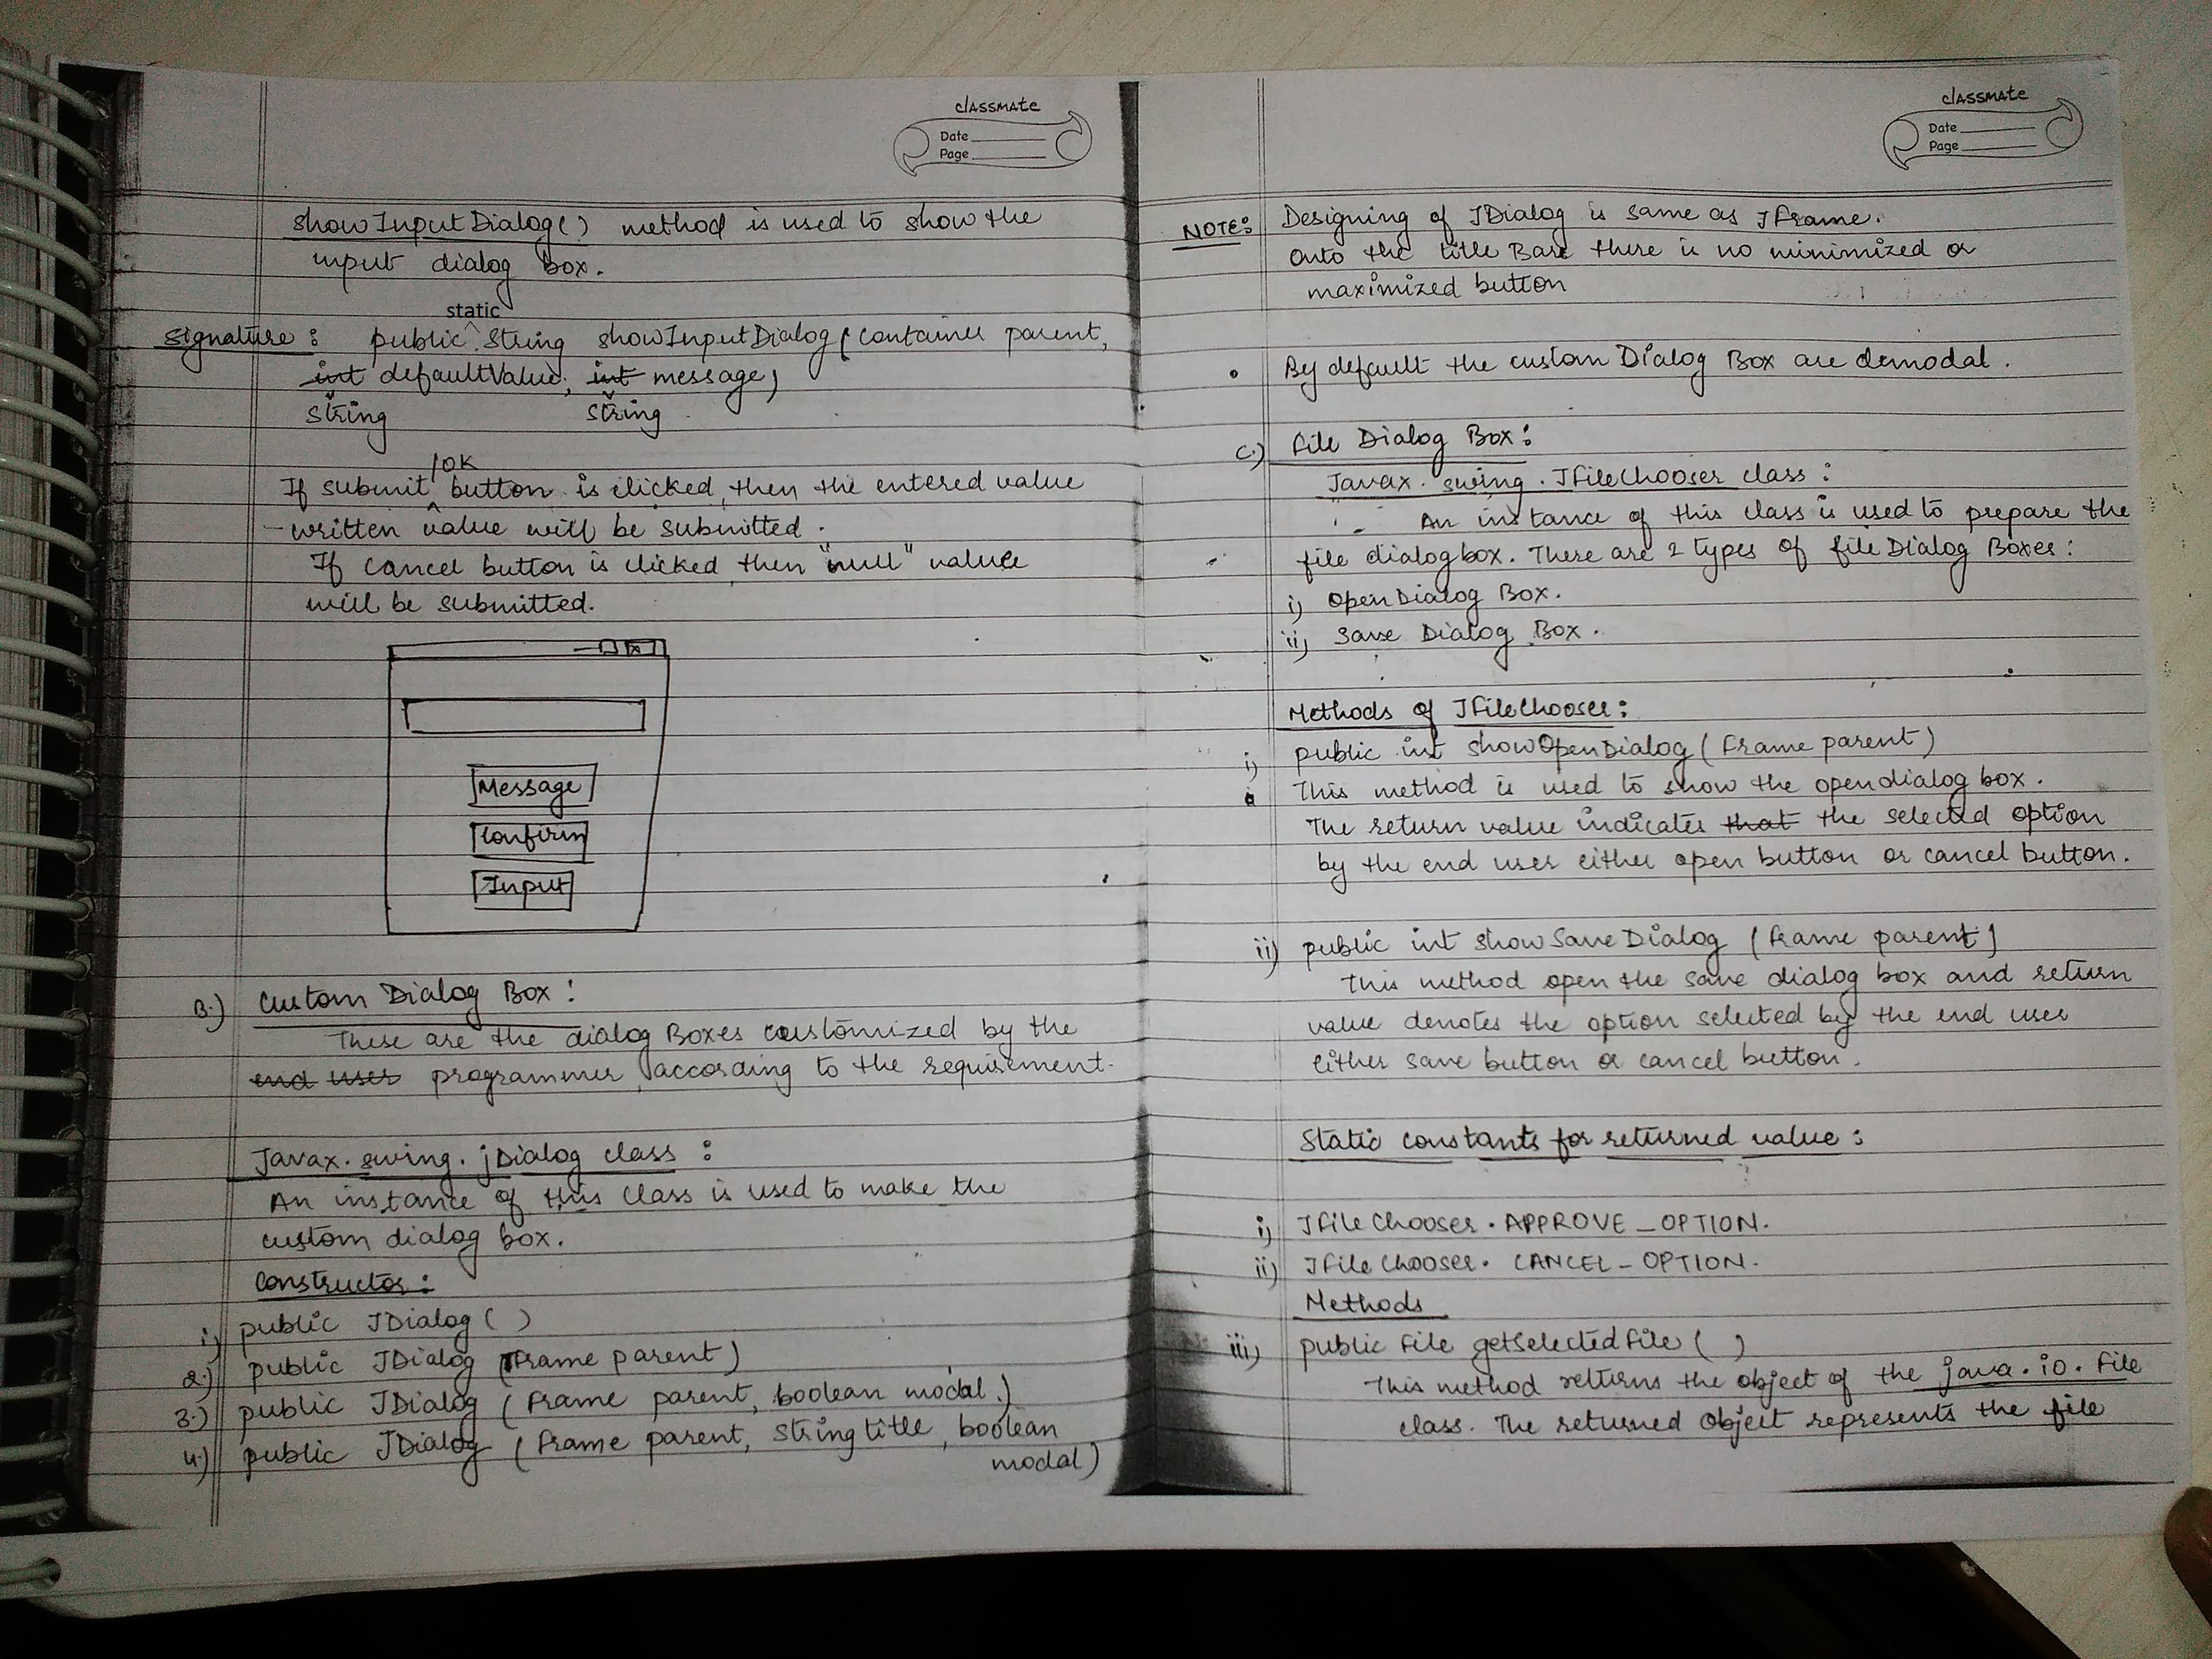 classmate
Date
Page
showInputDialog( ) method is used to show the
input dialog box.
static
Signature : public ^ String showInputDialog (Container parent,
int defaultValue, int message)
String String
/OK
If submit ^ button is clicked, then the entered value
written value will be submitted.
If cancel button is clicked, then "null" value
will be submitted.
Message
Confirm
Input
B.) Custom Dialog Box :
These are the dialog Boxes customized by the
end user programmer, according to the requirement.
Javax. swing. jDialog class :
An instance of this class is used to make the
custom dialog box.
Constructor :
i) public JDialog ( )
2.) public JDialog (Frame parent)
3.) public JDialog (Frame parent, boolean modal.)
4.) public JDialog (Frame parent, String title, boolean
modal)
classmate
Date
Page
NOTE: Designing of JDialog is same as JFrame.
Onto the title Bar there is no minimized or
maximized button
• By default the custom Dialog Box are demodal.
C.) File Dialog Box :
Javax. swing. JFileChooser class :
An instance of this class is used to prepare the
file dialog box. There are 2 types of file Dialog Boxes :
i) Open Dialog Box.
ii) Save Dialog Box.
Methods of JFileChooser :
i) public int showOpenDialog (Frame parent)
• This method is used to show the open dialog box.
The return value indicates that the selected option
by the end user either open button or cancel button.
ii) public int showSaveDialog (Frame parent)
This method open the save dialog box and return
value denotes the option selected by the end user
either save button or cancel button.
Static constants for returned value :
i) JFileChooser. APPROVE_OPTION.
ii) JFileChooser. CANCEL_OPTION.
Methods
iii) public File getSelectedFile ( )
This method returns the object of the java.io.File
class. The returned Object represents the file